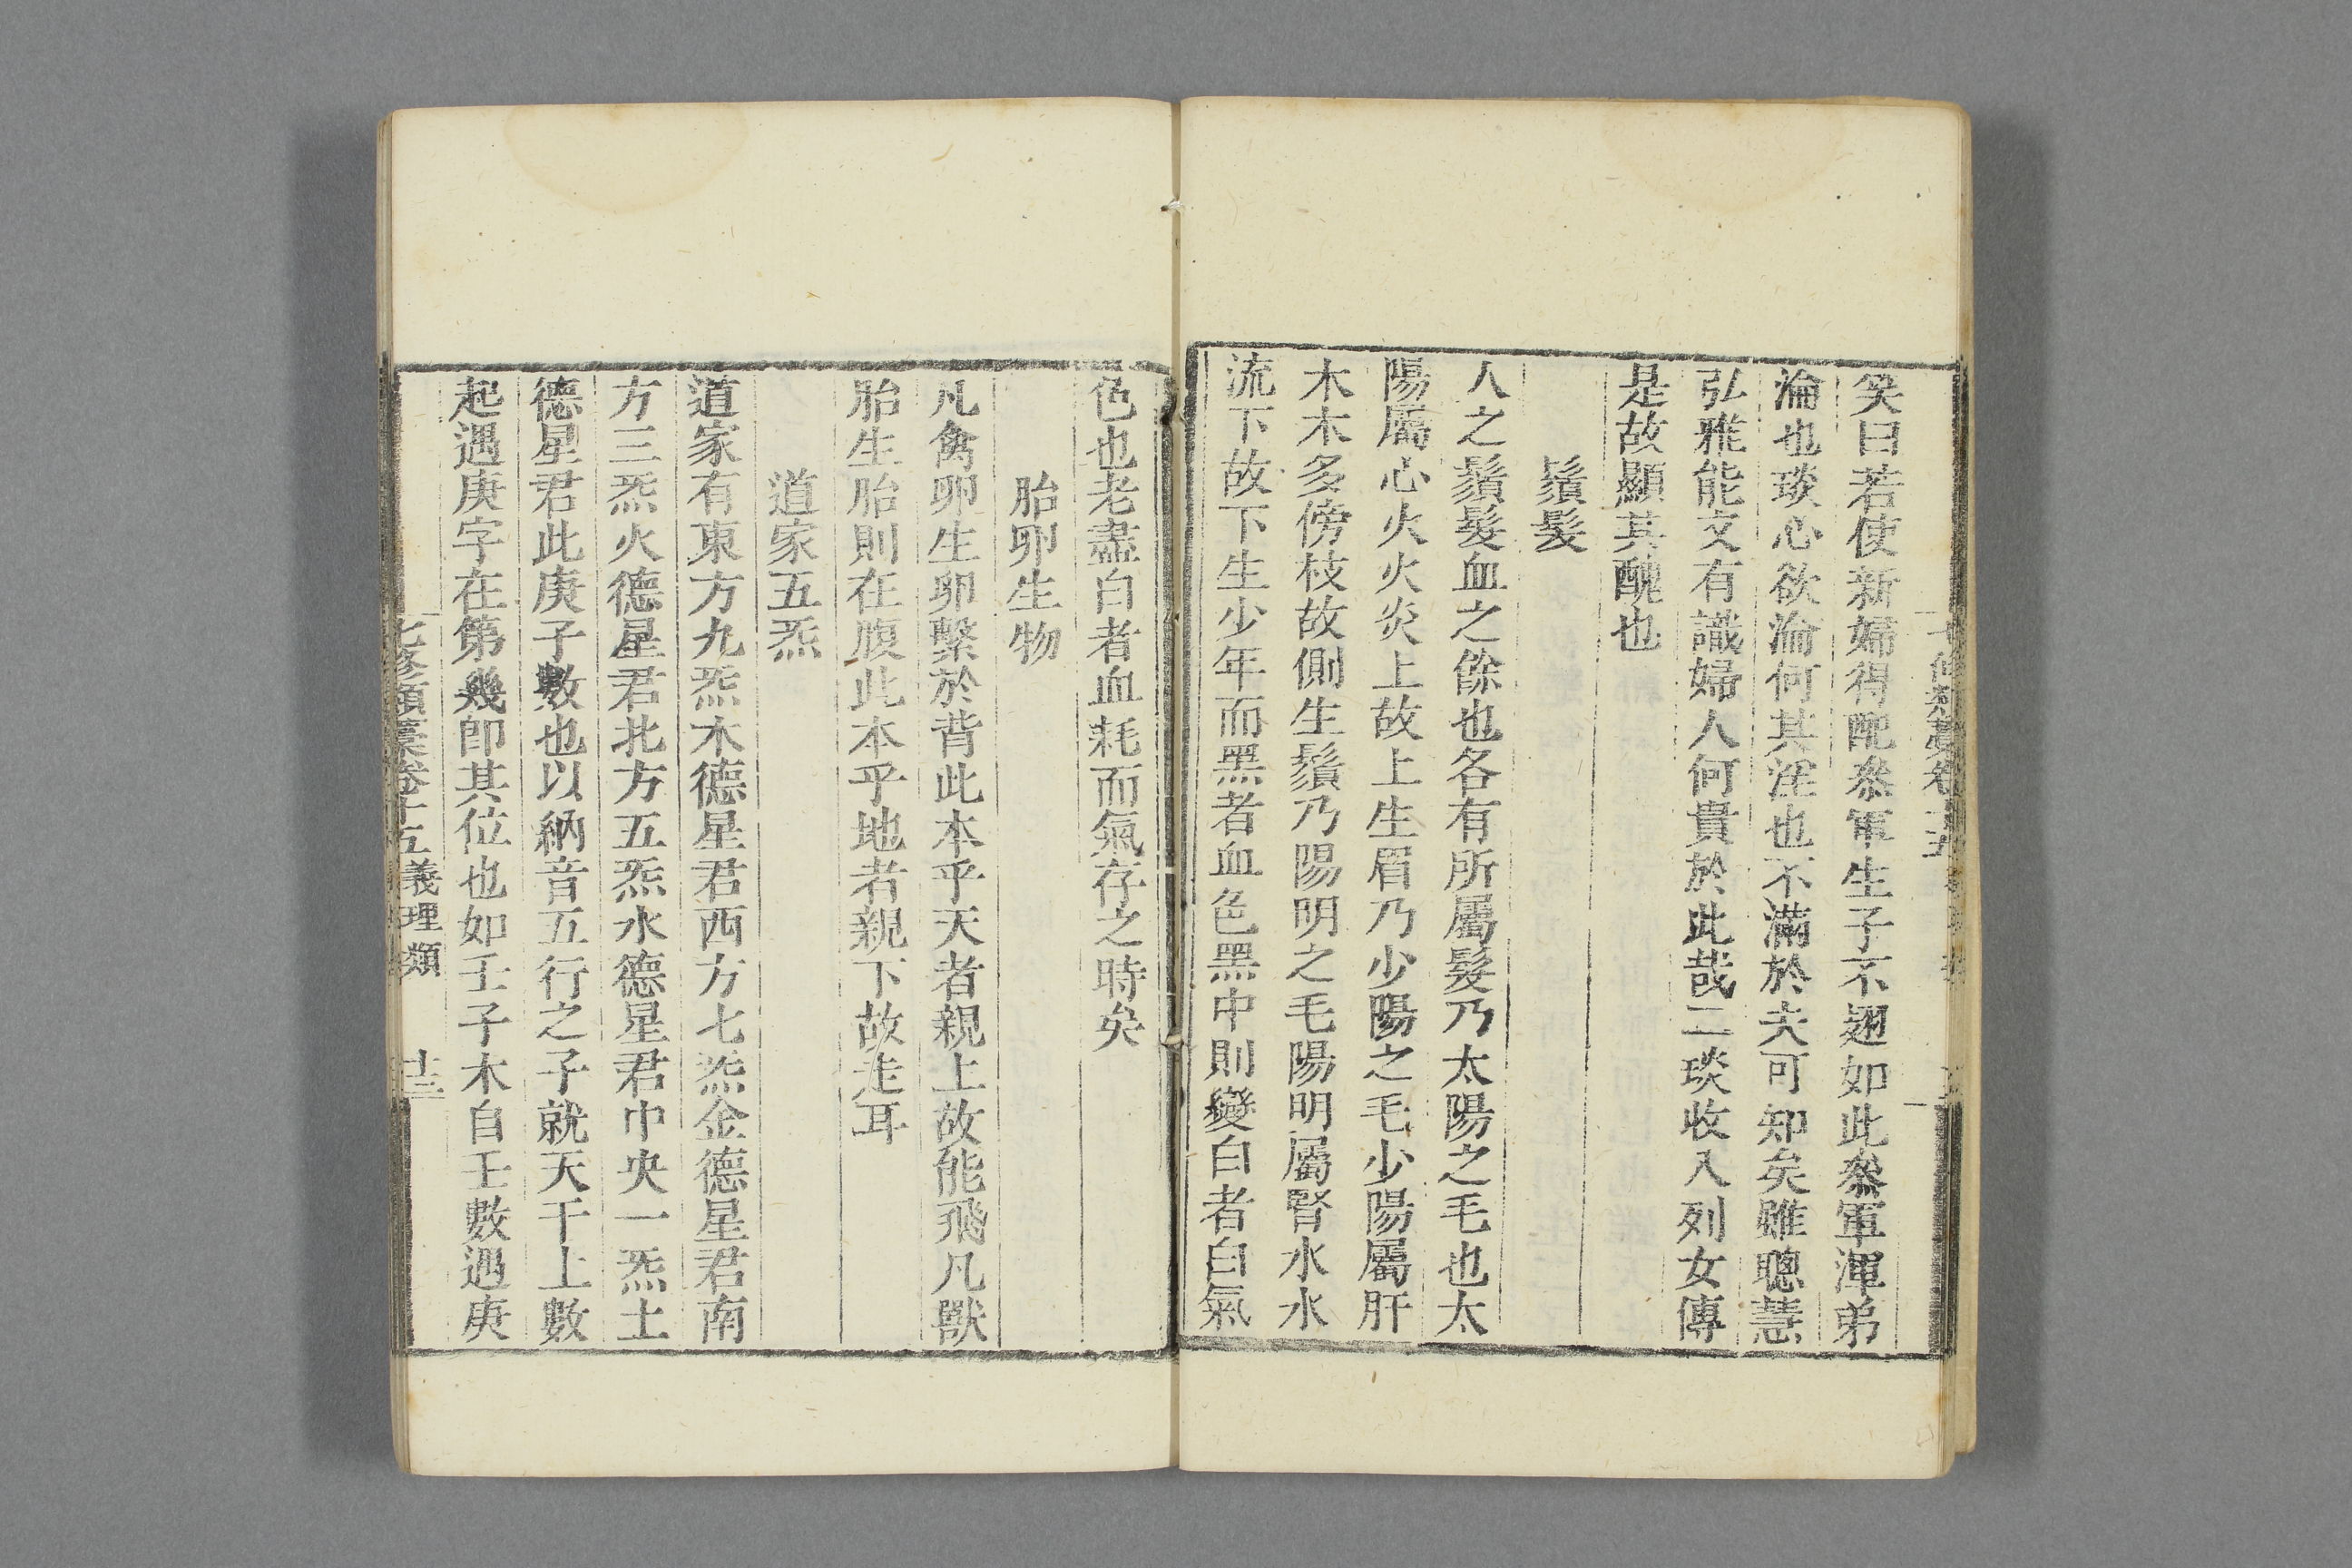 笑曰若使新婦得配叅軍生子不翅如此叅軍渾弟
淪也琰心欲淪何其淫也不滿於夫可知矣雖聰慧
弘雅能文有識婦人何貴於此哉二琰收入列女傳
是故顯其醜也
鬚髮
人之鬚髮血之餘也各有所屬髮乃太陽之毛也太
陽屬心火火炎上故上生眉乃少陽之毛少陽屬肝
木木多傍枝故側生鬚乃陽明之毛陽明屬腎水水
流下故下生少年而黑者血色黑中則變白者白氣
色也老盡白者血耗而氣存之時矣
胎卵生物
凡禽卵生卵繫於背此本乎天者親上故能飛凡獸
胎生胎則在腹此本乎地者親下故走耳
道家五炁
道家有東方九炁木德星君西方七炁金德星君南
方三炁火德星君北方五炁水德星君中央一炁土
德星君此庚子數也以納音五行之子就天干上數
起遇庚字在第幾卽其位也如壬子木自壬數遇庚
七修類藁卷十五義理類 十三